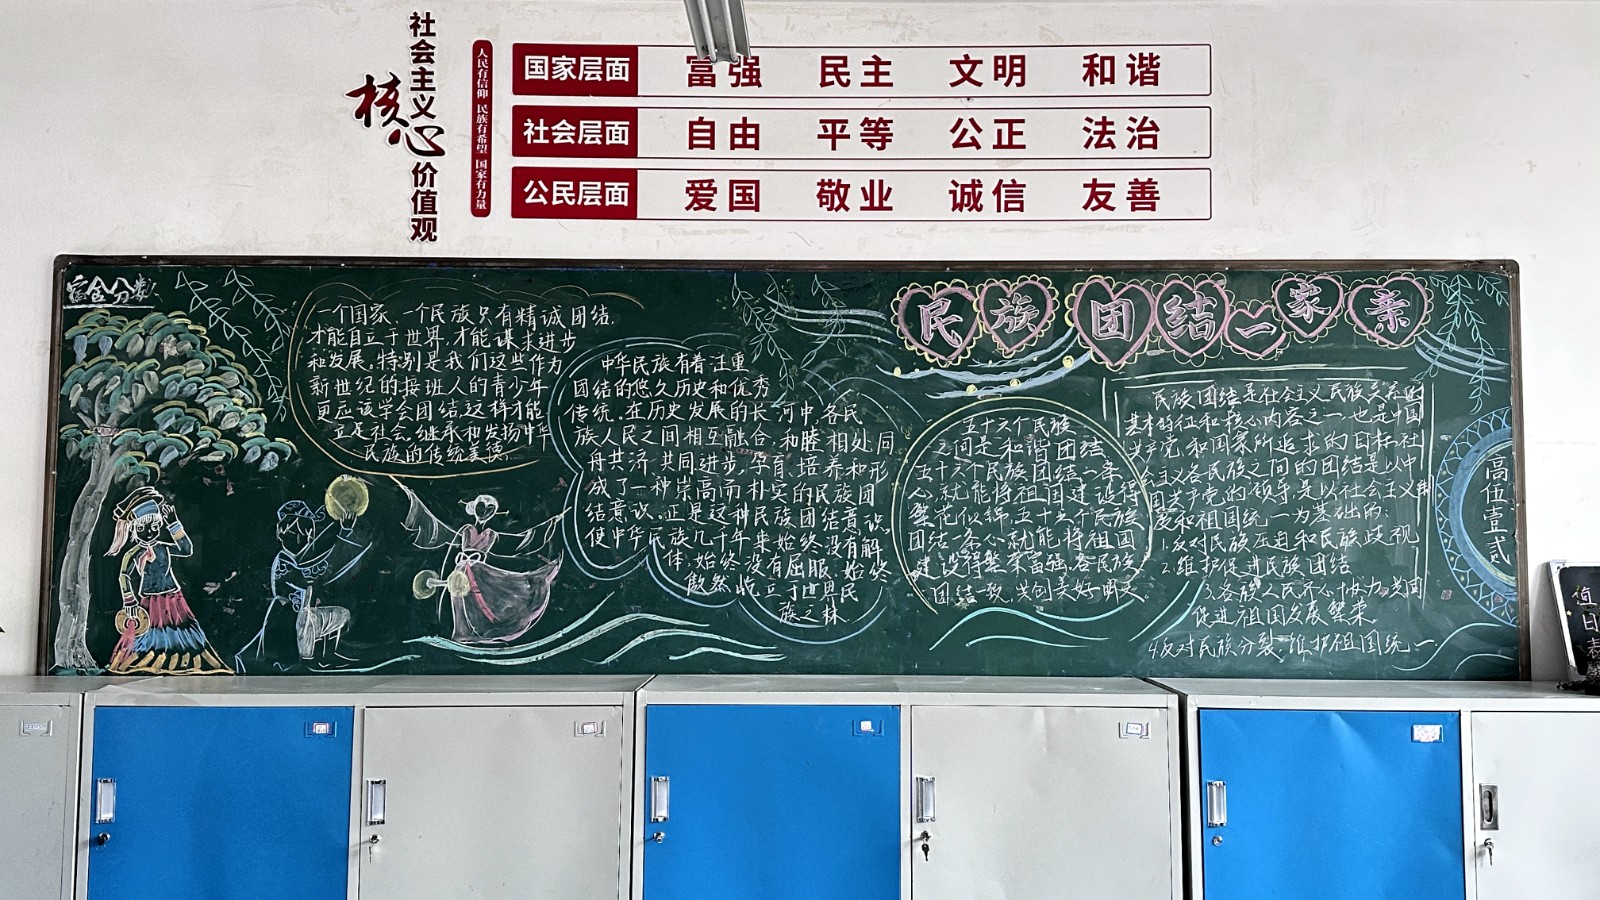 社会主义
核心
价值观
人民有信仰 民族有希望 国家有力量
国家层面 富强 民主 文明 和谐
社会层面 自由 平等 公正 法治
公民层面 爱国 敬业 诚信 友善
宿舍分数!
民族团结一家亲
一个国家,一个民族只有精诚团结,
才能自立于世界,才能谋求进步
和发展。特别是我们这些作为
新世纪的接班人的青少年
更应该学会团结,这样才能
立足社会,继承和发扬中华
民族的传统美德。
中华民族有着注重
团结的悠久历史和优秀
传统。在历史发展的长河中,各民
族人民之间相互融合,和睦相处,同
舟共济,共同进步,孕育、培养和形
成了一种崇高而朴实的民族团
结意识。正是这种民族团结意识
使中华民族几十年来始终没有解
体,始终没有屈服,始终
傲然屹立于世界民
族之林
五十六个民族
之间是和谐团结
五十六个民族团结一条
心,就能将祖国建设得
繁花似锦,五十六个民族
团结一条心,就能将祖国
建设得繁荣富强。各民族
团结一致,共创美好明天
民族团结是社会主义民族关系的
基本特征和核心内容之一,也是中国
共产党和国家所追求的目标,社
会主义各民族之间的团结是以中
国共产党的领导是以社会主义制
度和祖国统一为基础的:
1.反对民族压迫和民族歧视
2.维护促进民族团结
3.各族人民齐心协力,共同
促进祖国发展繁荣。
4.反对民族分裂,维护祖国统一
高伍壹式
值日表